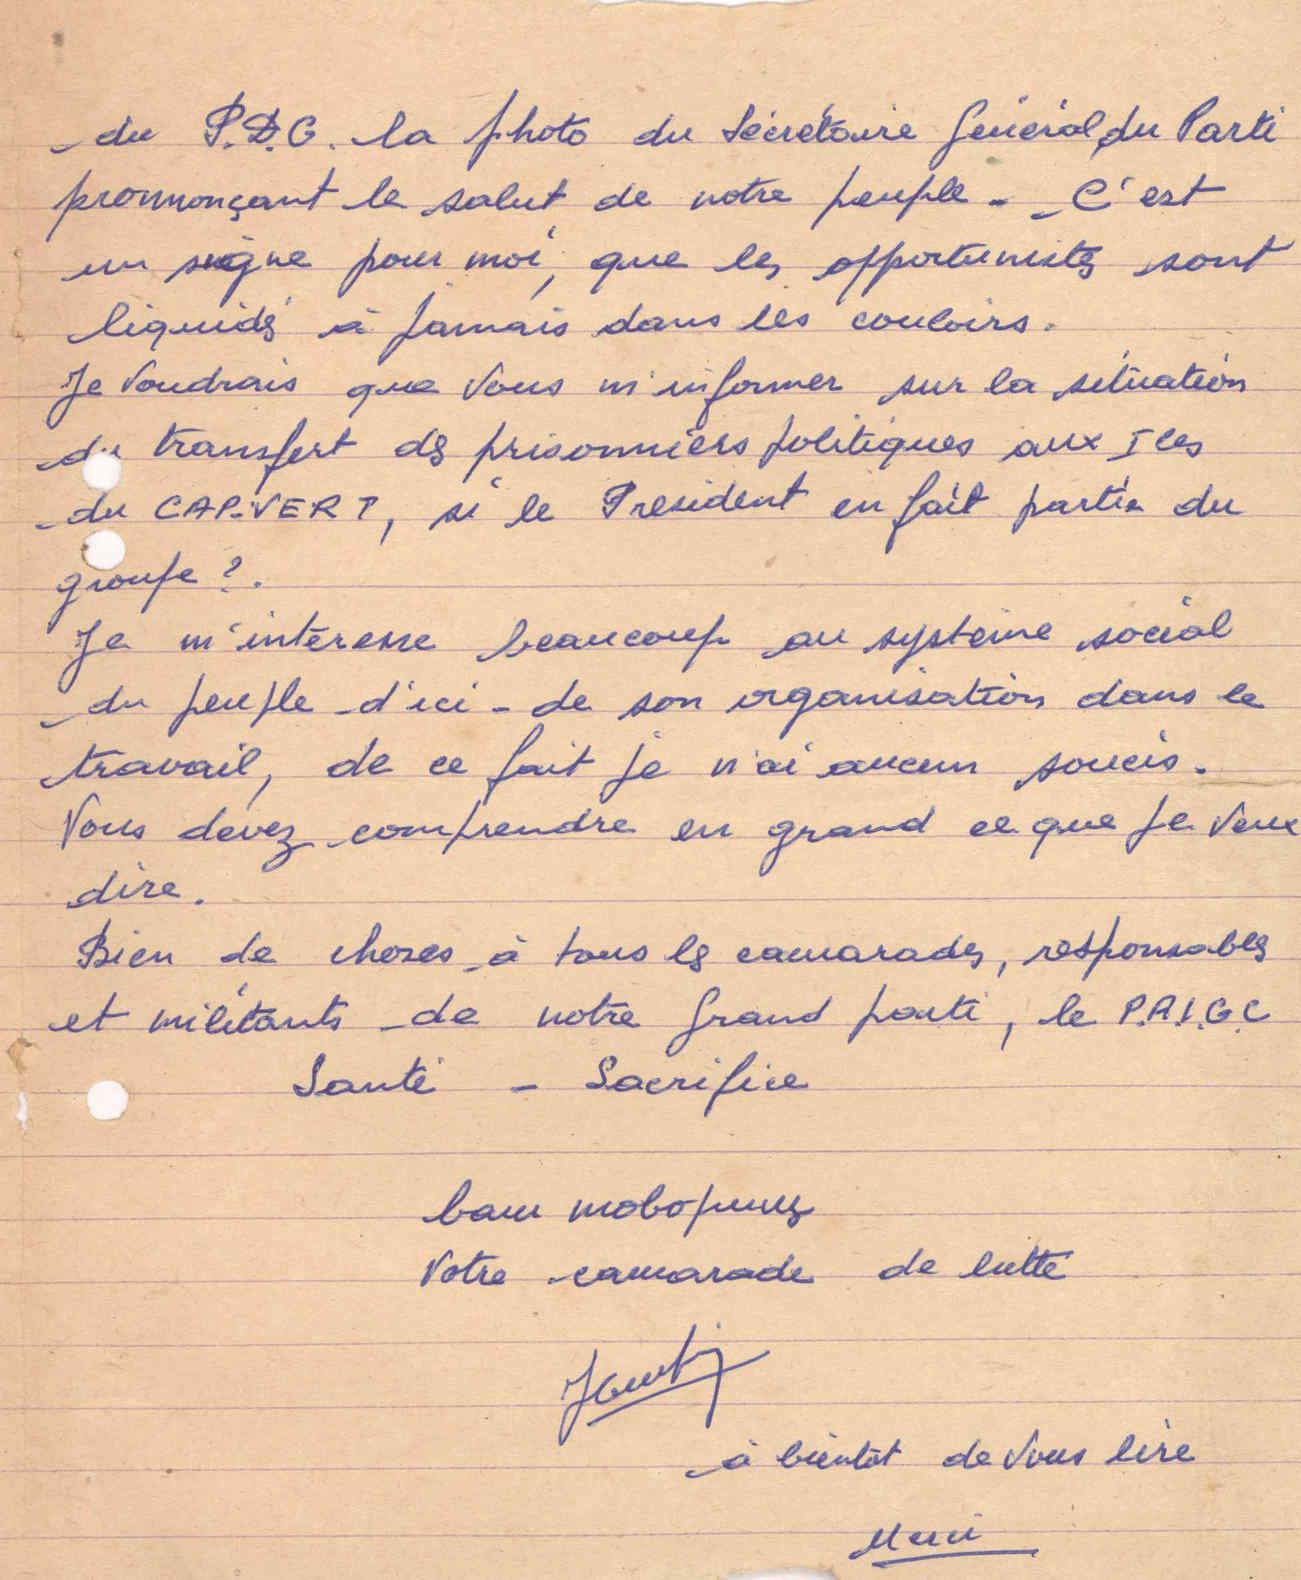 du P.D.G. la photo du Sécrétaire Général du Parti
pronnonçant le salut de notre peuple - C'est
un signe pour moi, que les opportunistes sont
liquidés à jamais dans les couloirs.
Je Voudrais que Vous m'informer sur la situation
du transfert des prisonniers politiques aux Iles
du CAP-VERT, si le Président en fait partie du
groupe ?.
Je m'intéresse beaucoup au système social
du peuple d'ici - de son organisation dans le
travail, de ce fait je n'ai aucun soucis.
Vous devez comprendre en grand ce que je Veux
dire.
Bien de choses à tous les camarades, responsables
et militants de notre Grand parti, le P.A.I.G.C
Santé - Sacrifice
Votre camarade de lutte
à bientôt de Vous lire
Merci